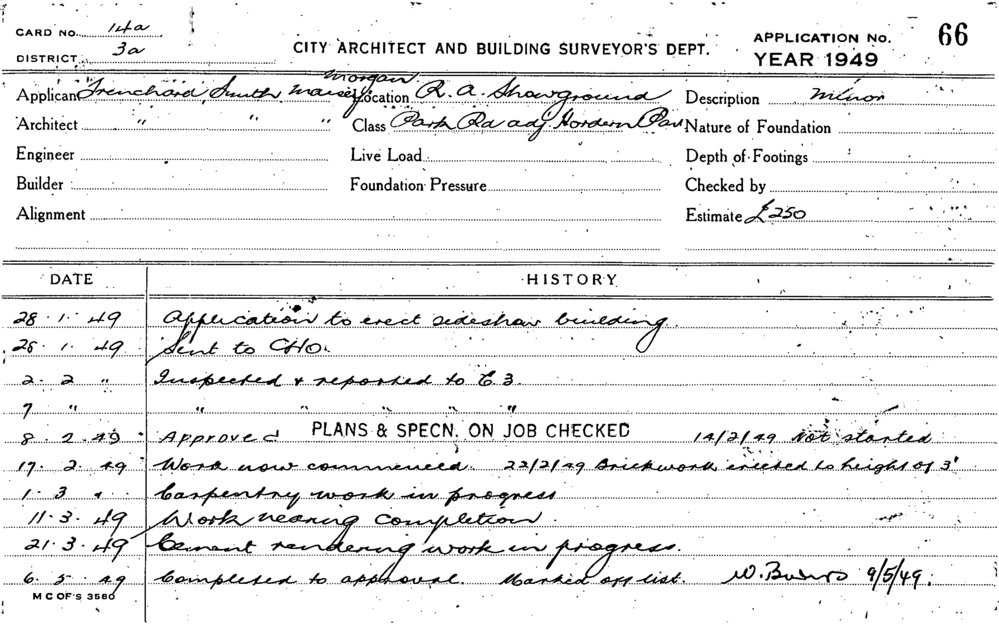 CARD NO. 14a
DISTRICT 3a
CITY ARCHITECT AND BUILDING SURVEYOR'S DEPT.
APPLICATION No. 66
YEAR 1949
Morgan
Applicant Trenchard, Smith, Maisey Location R. A. Showground Description Minor
Architect " " " Class Park Rd adj Hordern Pav Nature of Foundation
Engineer Live Load Depth of Footings
Builder Foundation Pressure Checked by
Alignment Estimate £250
DATE HISTORY
28 . 1 . 49 Application to erect sideshow building.
28 . 1 . 49 Sent to CHO.
2 . 2 " Inspected & reported to E.3.
7 " " " " "
8 . 2 . 49 Approved PLANS & SPECN. ON JOB CHECKED 14/2/49 Not started
17 . 2 . 49 Work now commenced. 22/2/49 Brickwork erected to height of 3'
1 . 3 " Carpentry work in progress
11 . 3 . 49 Work nearing completion.
21 . 3 . 49 Cement rendering work in progress.
6 . 5 . 49 Completed to approval. Marked off list. W. 9/5/49.
M C OF S 3580